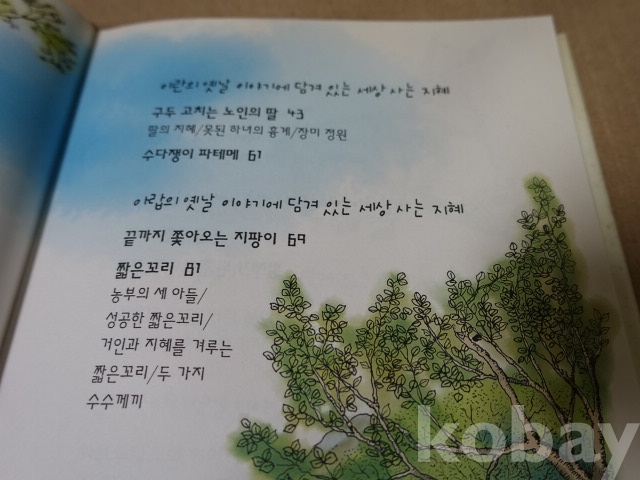 이란의 옛날 이야기에 담겨 있는 세상 사는 지혜
구두 고치는 노인의 딸 43
딸의 지혜/못된 하녀의 흉계/장미 정원
수다쟁이 파테메 61
아랍의 옛날 이야기에 담겨 있는 세상 사는 지혜
끝까지 쫓아오는 지팡이 69
짧은꼬리 81
농부의 세 아들/
성공한 짧은꼬리/
거인과 지혜를 겨루는
짧은꼬리/두 가지
수수께끼
kobay